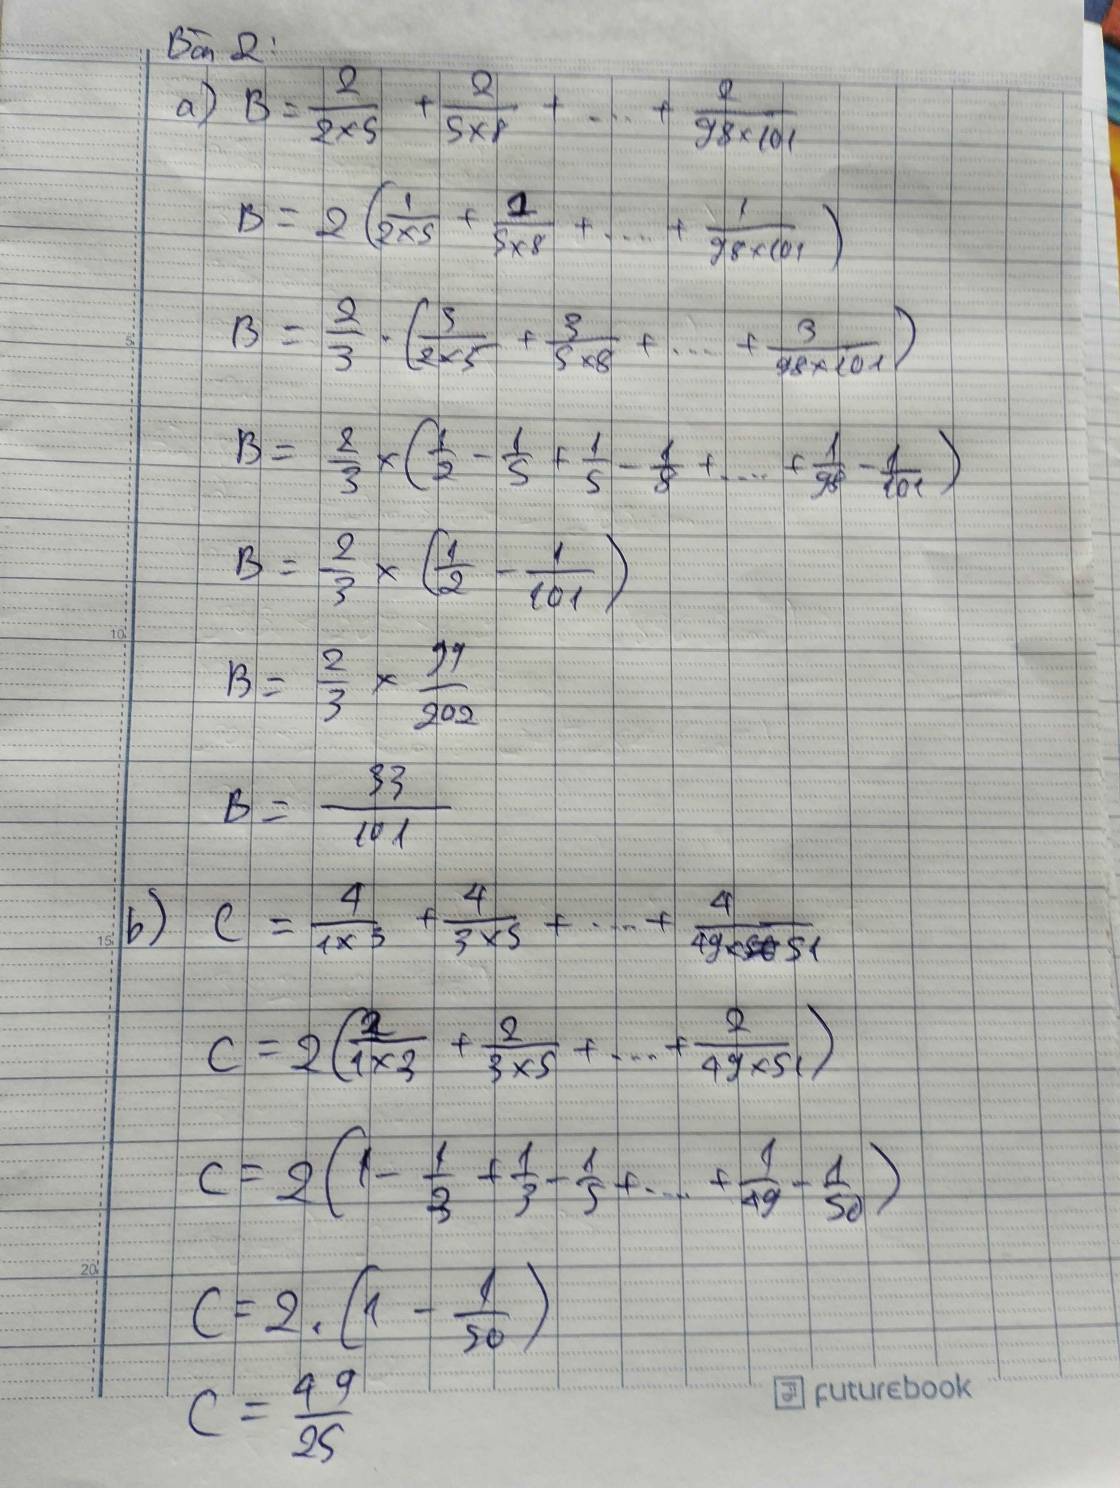 Bài 2:
a) B = 2/(2×5) + 2/(5×8) + .... + 2/(98×101)
B = 2 (1/(2×5) + 1/(5×8) + .... + 1/(98×101))
5
B = 2/3 . (3/(2×5) + 3/(5×8) + .... + 3/(98×101))
B = 2/3 × (1/2 - 1/5 + 1/5 - 1/8 + .... + 1/98 - 1/101)
B = 2/3 × (1/2 - 1/101)
10
B = 2/3 × 99/202
B = 33/101
b) C = 4/(1×3) + 4/(3×5) + .... + 4/(49×51)
15
C = 2 (2/(1×3) + 2/(3×5) + .... + 2/(49×51))
C = 2 (1 - 1/3 + 1/3 - 1/5 + .... + 1/49 - 1/50)
20
C = 2 . (1 - 1/50)
C = 49/25
futurebook